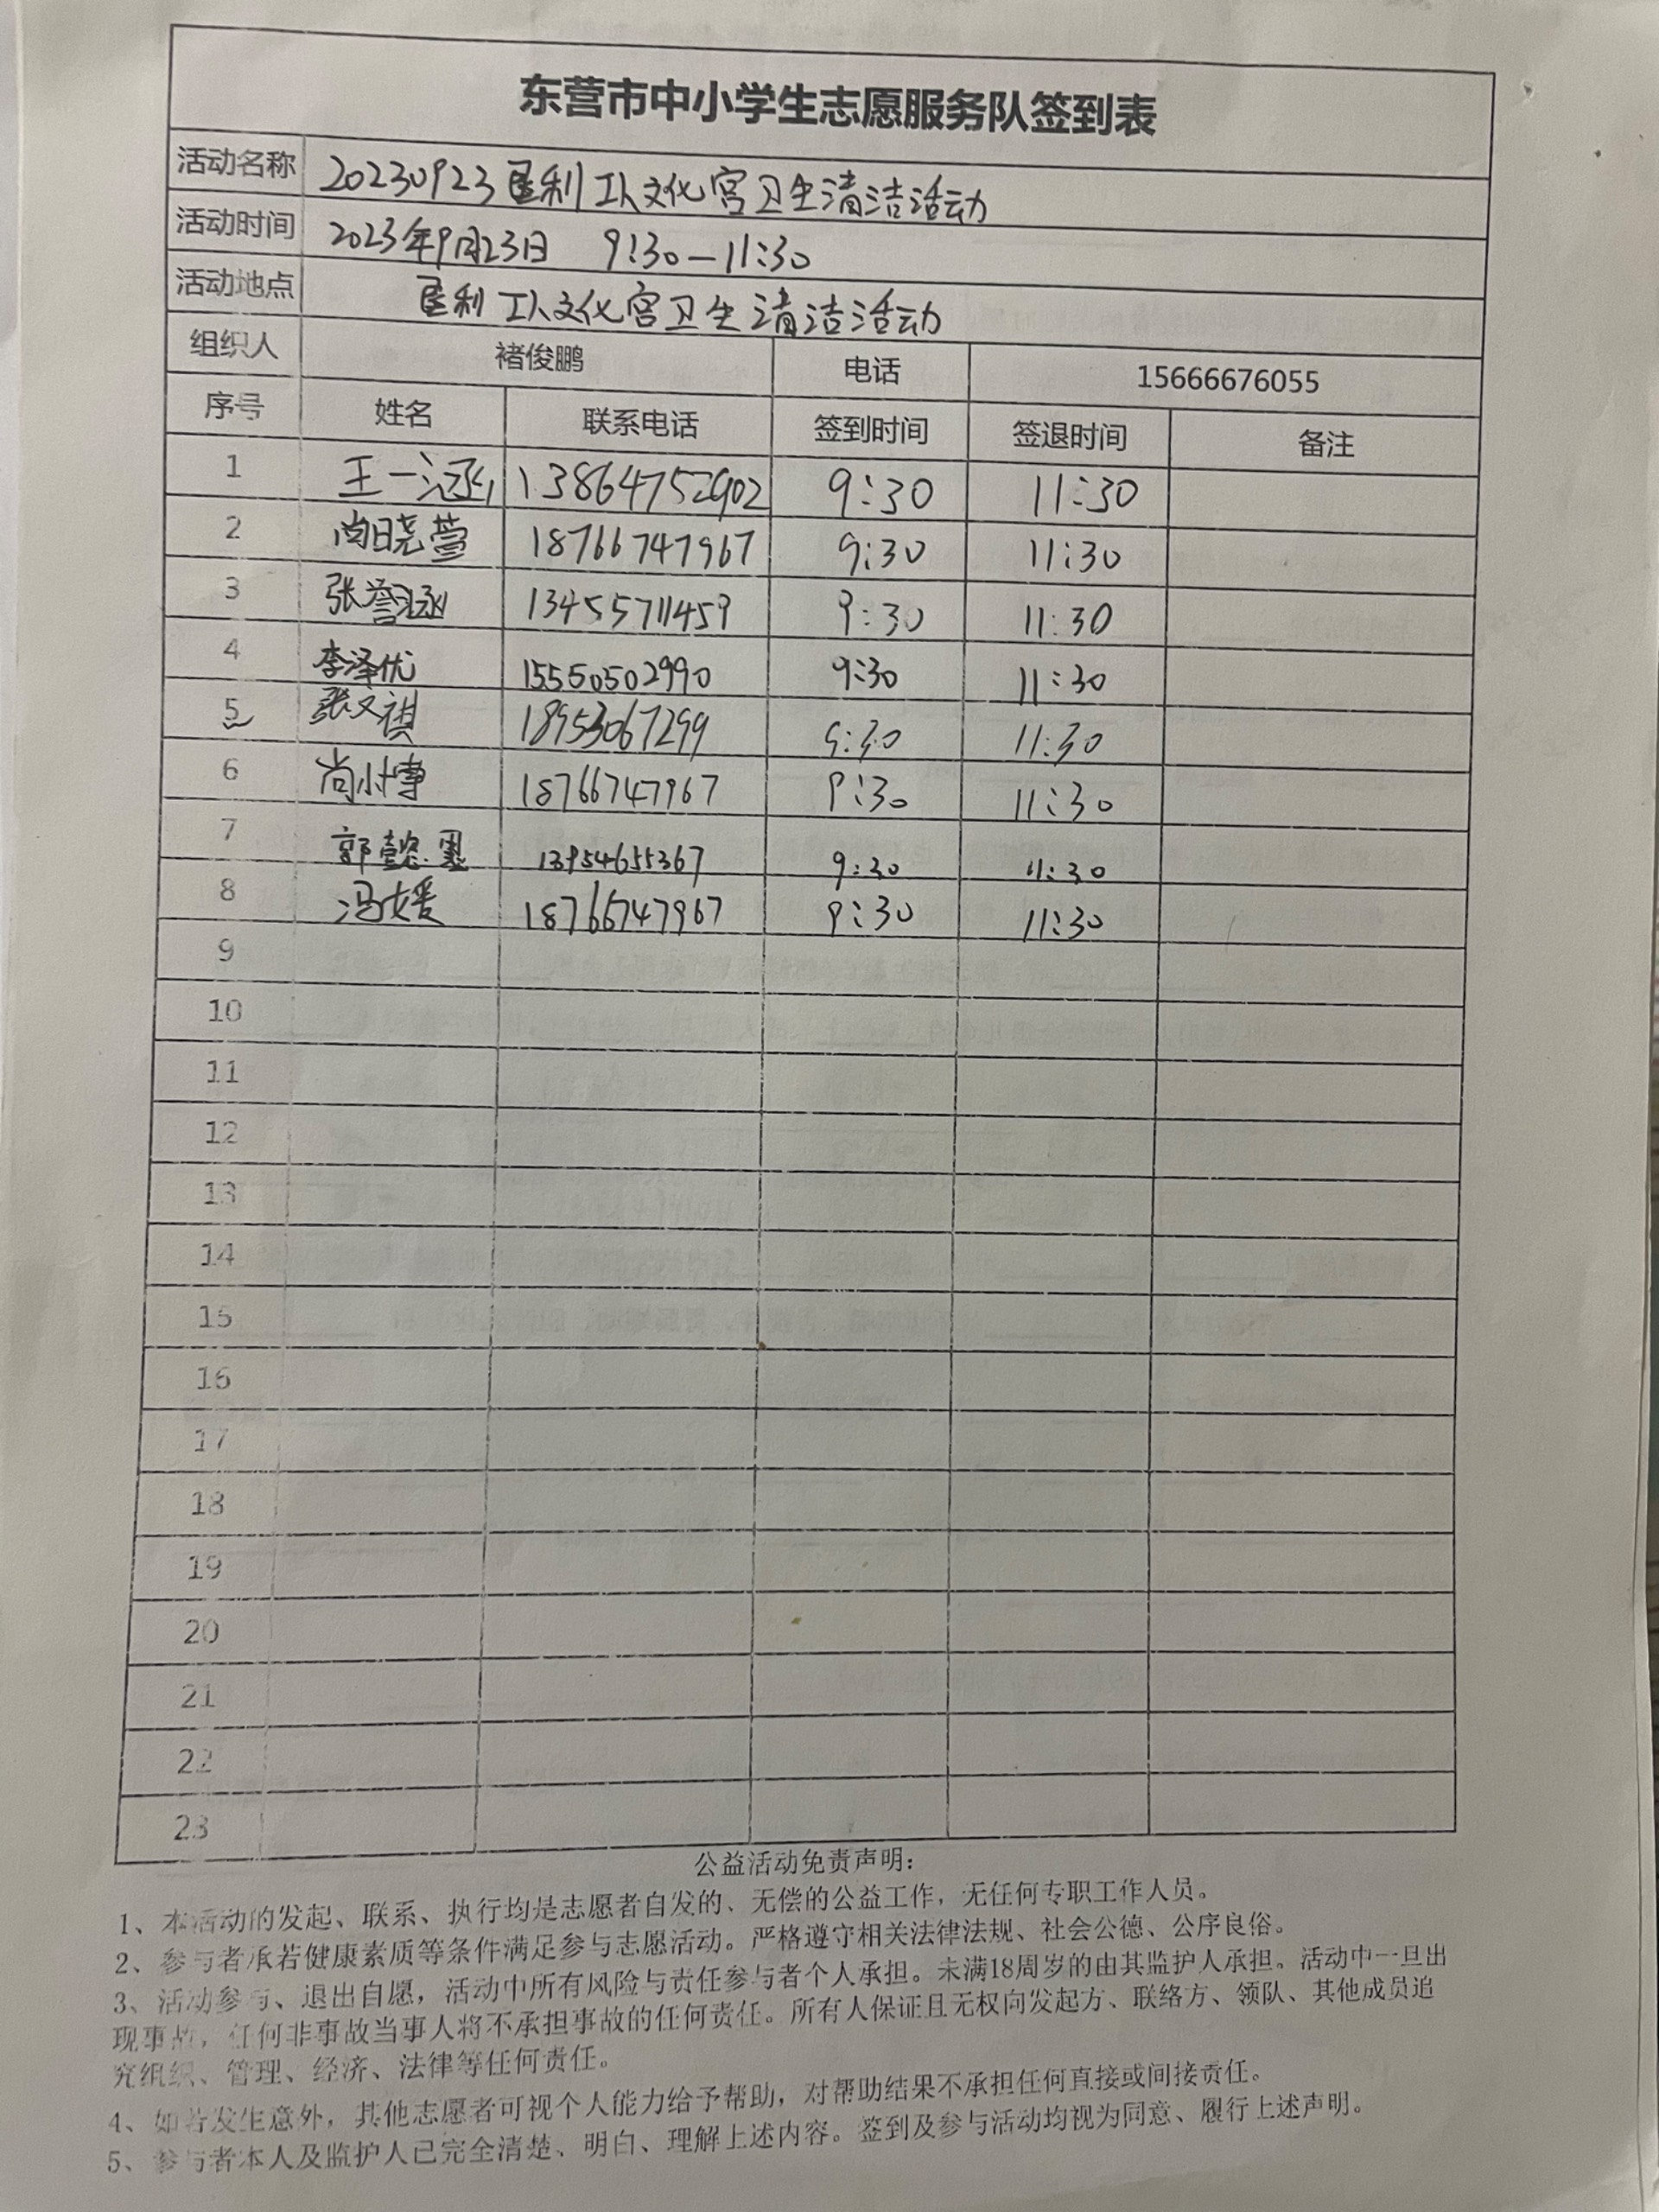 东营市中小学生志愿服务队签到表
活动名称 20230923垦利工人文化宫卫生清洁活动
活动时间 2023年9月23日 9:30—11:30
活动地点 垦利工人文化宫卫生清洁活动
组织人 褚俊鹏 电话 15666676055
序号 姓名 联系电话 签到时间 签退时间 备注
1 王一涵 13864752902 9:30 11:30
2 尚晓萱 18766747967 9:30 11:30
3 张誉涵 13455711459 9:30 11:30
4 李泽优 15550502990 9:30 11:30
5 张文祺 18953067299 9:30 11:30
6 尚小博 18766747967 9:30 11:30
7 郭懿墨 13954655367 9:30 11:30
8 冯媛 18766747967 9:30 11:30
9
10
11
12
13
14
15
16
17
18
19
20
21
22
23
公益活动免责声明：
1、本活动的发起、联系、执行均是志愿者自发的、无偿的公益工作，无任何专职工作人员。
2、参与者承若健康素质等条件满足参与志愿活动。严格遵守相关法律法规、社会公德、公序良俗。
3、活动参与、退出自愿，活动中所有风险与责任参与者个人承担。未满18周岁的由其监护人承担。活动中一旦出
现事故，任何非事故当事人将不承担事故的任何责任。所有人保证且无权向发起方、联络方、领队、其他成员追
究组织、管理、经济、法律等任何责任。
4、如若发生意外，其他志愿者可视个人能力给予帮助，对帮助结果不承担任何直接或间接责任。
5、参与者本人及监护人已完全清楚、明白、理解上述内容。签到及参与活动均视为同意、履行上述声明。